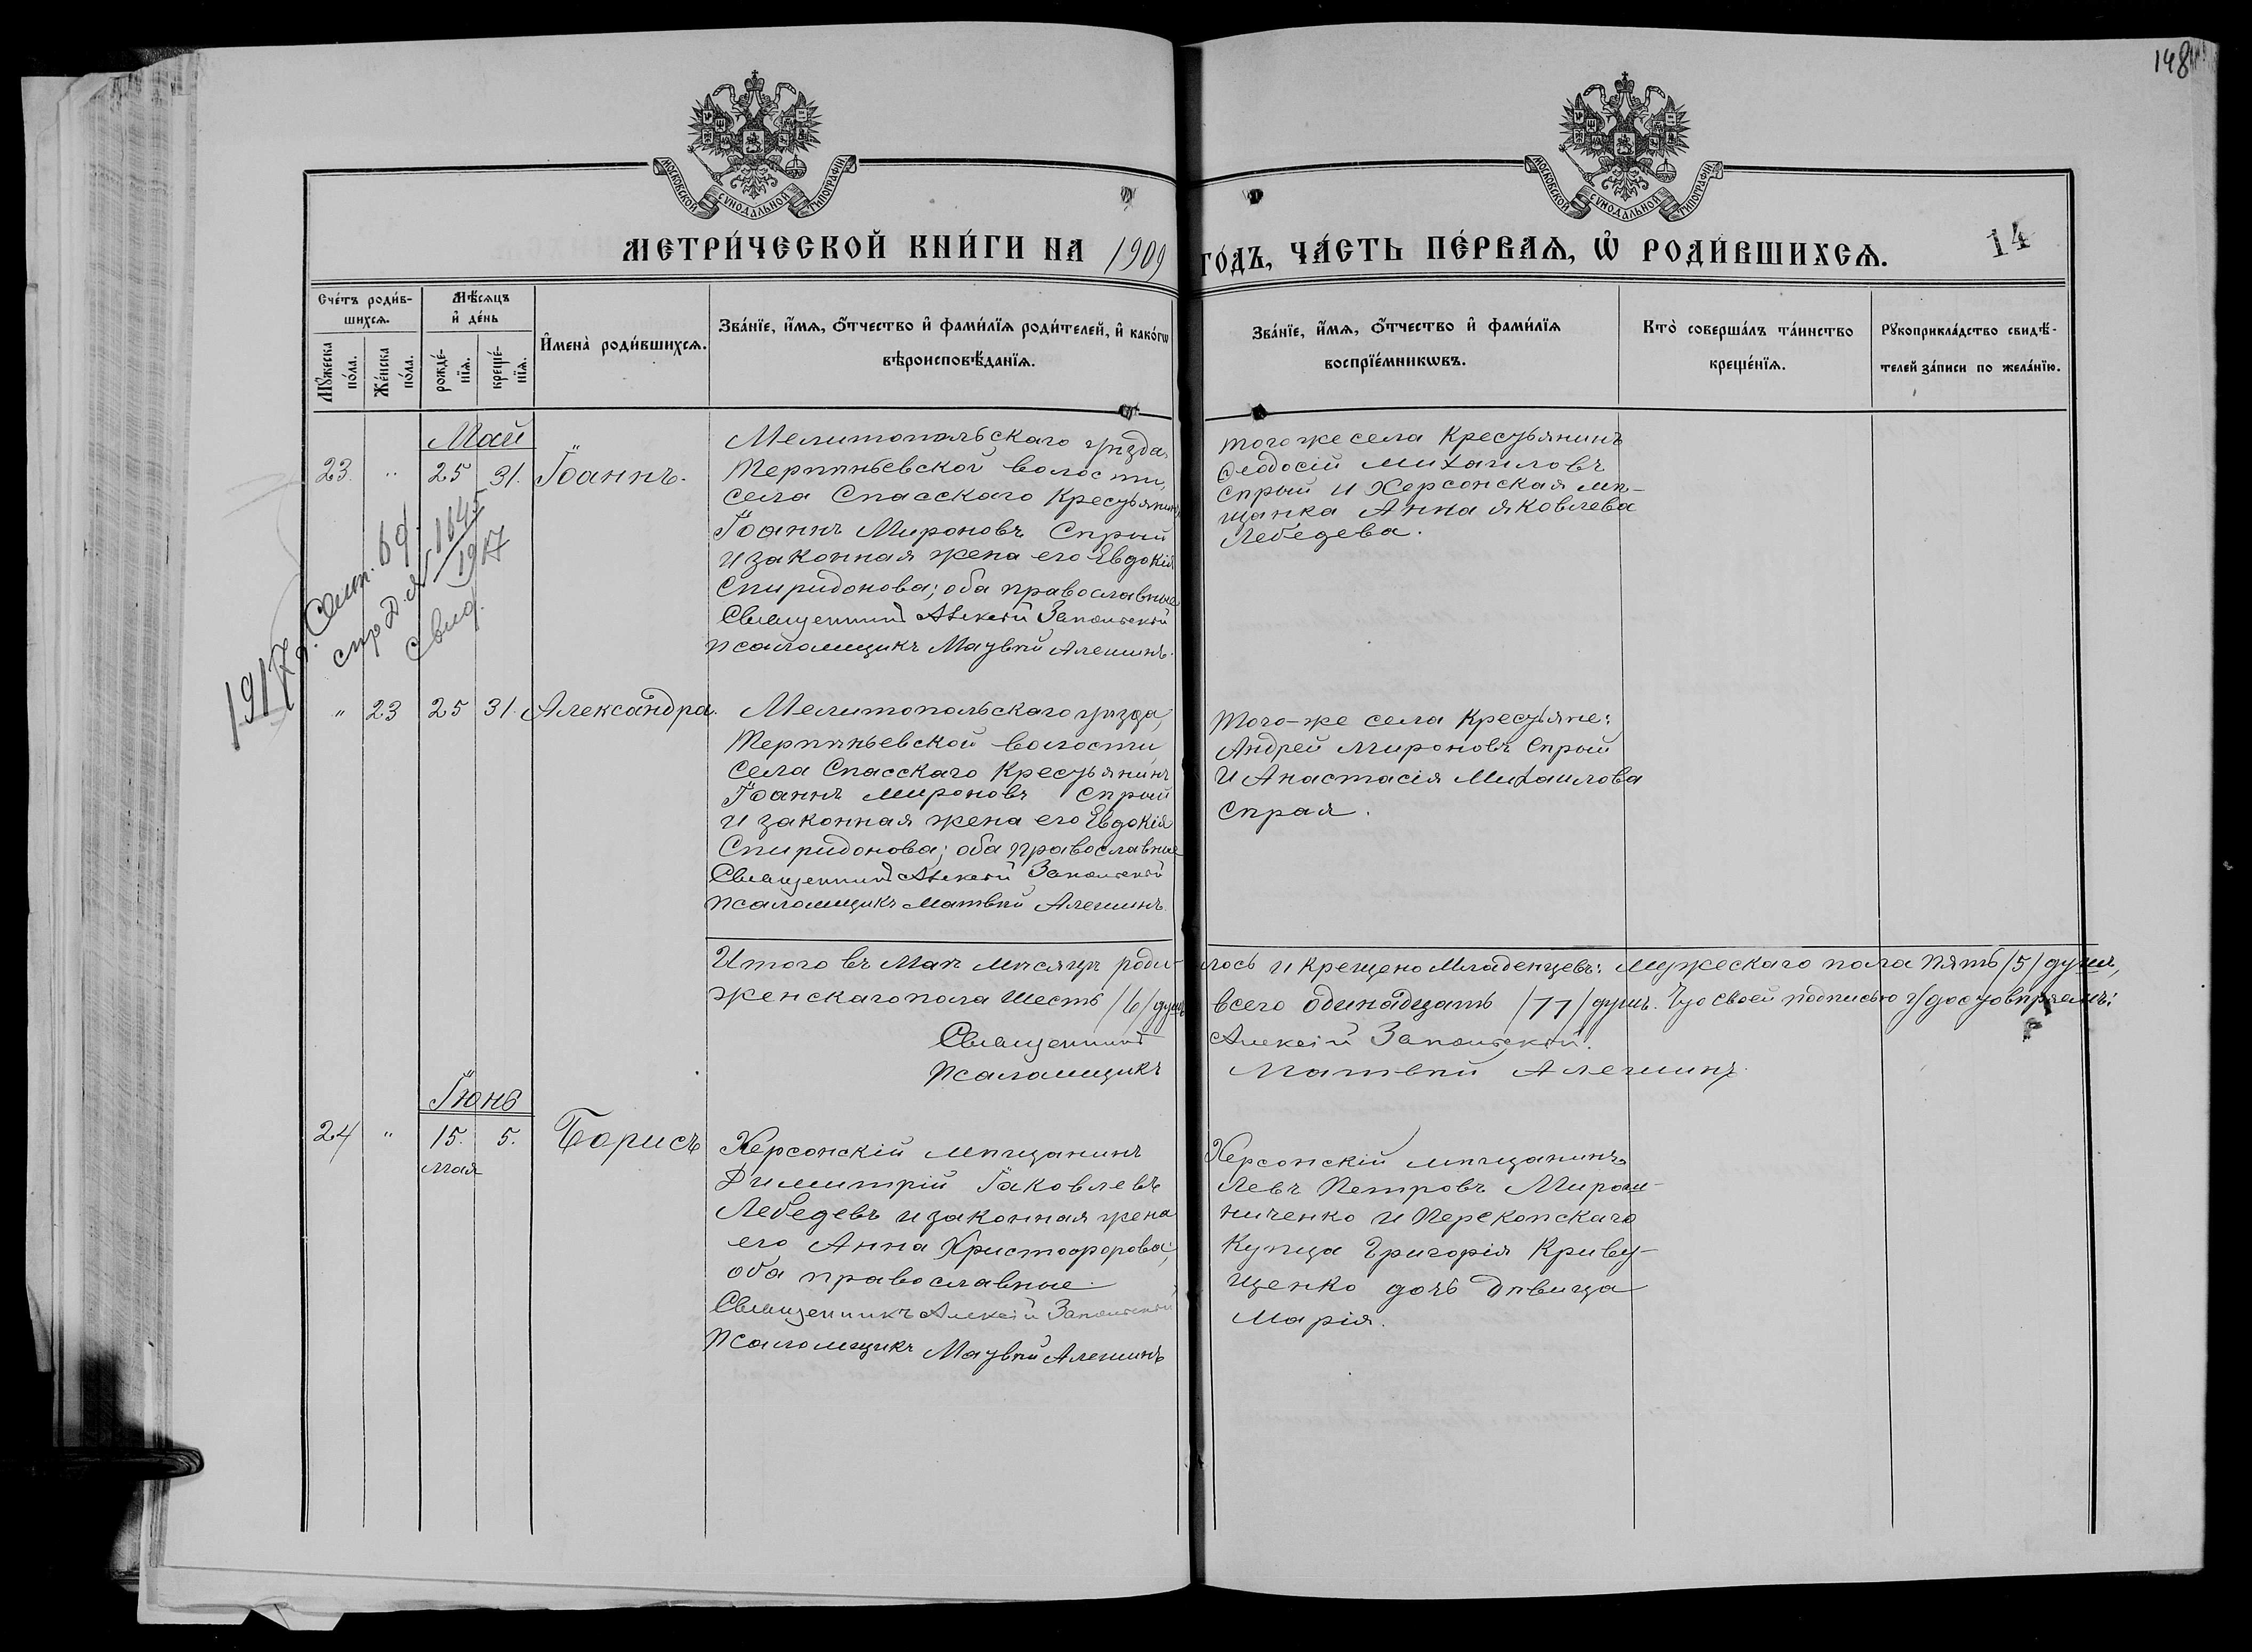 148
МОСКОВСКОЙ СѴНОДАЛЬНОЙ ТИПОГРАФІИ
МОСКОВСКОЙ СѴНОДАЛЬНОЙ ТИПОГРАФІИ
МЕТРИ́ЧЕСКОЙ КНИ́ГИ НА 1909 ГО́ДЪ, ЧА́СТЬ ПЕ́РВАѦ, Ѡ РОДИ́ВШИХСѦ.
14
Сче́тъ роди́в-
шихсѧ.
Мꙋ́жеска
по́ла.
Же́нска
по́ла.
Мѣ́сѧцъ
и҆ де́нь
рожде́-
нїѧ.
креще́-
нїѧ.
И҆мена̀ роди́вшихсѧ.
Зва́нїе, и҆́мѧ, ѻ҆́тчество и҆ фами́лїѧ роди́телей, и҆ како́гѡ
вѣроисповѣ́данїѧ.
Зва́нїе, и҆́мѧ, ѻ҆́тчество и҆ фами́лїѧ
воспрїе́мникѡвъ.
Кто̀ соверша́лъ та́инство
креще́нїѧ.
Рꙋкоприкла́дство свидѣ́-
телей за́писи по жела́нїю.
Май
23. " 25 31. Іоаннъ.
Мелитопольскаго уѣзда,
Терпѣньевской волости,
села Спасскаго крестьянинъ
Іоаннъ Мироновъ Спрый
и законная жена его Евдокія
Спиридонова; оба православные
Священникъ Алексій
Псаломщикъ Матвѣй Алешинъ.
того же села крестьянинъ
Ѳеодосій Михаиловъ
Спрый и Херсонская мѣ-
щанка Анна Яковлева
Лебедева.
1917 г. Сент. 6 д.
спр Д. № 1645
1917
свид.
" 23 25 31. Александра.
Мелитопольскаго уѣзда,
Терпѣньевской волости
села Спасскаго крестьянинъ
Іоаннъ Мироновъ Спрый
и законная жена его Евдокія
Спиридонова; оба православные
Священникъ Алексій
Псаломщикъ Матвѣй Алешинъ.
того-же села крестьяне:
Андрей Мироновъ Спрый
и Анастасія Михаилова
Спрая.
Итого въ Маѣ мѣсяцѣ роди-лось и крещено младенцевъ: мужескаго пола пять /5/ душъ,
женскаго пола шесть /6/ душъ всего одинадцать /11/ душъ. Что своей подписью удостовѣряемъ:
Священникъ Алексій
Псаломщикъ Матвѣй Алешинъ.
Іюнь
24 " 15. 5. Борисъ
мая
Херсонскій мѣщанинъ
Димитрій Іаковлевъ
Лебедевъ и законная жена
его Анна Христофорова;
оба православные.
Священникъ Алексій
Псаломщикъ Матвѣй Алешинъ
Херсонскій мѣщанинъ
Левъ Петровъ Мирош-
ниченко и Перекопскаго
купца Григорія Криву-
щенко дочь дѣвица
Марія.